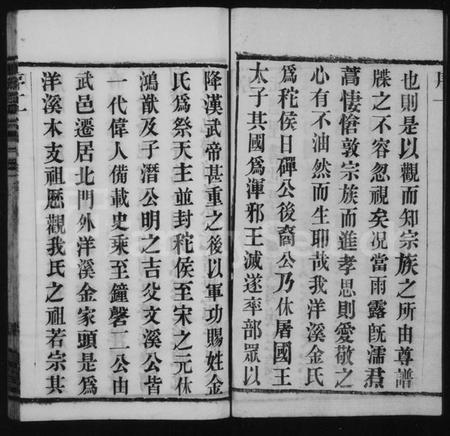 序一
也則是以觀而知宗族之所由尊譜
牒之不容忽視矣况當雨露既濡焄
蒿悽愴敦宗族而進孝思則愛敬之
心有不油然而生耶哉我洋溪金氏
爲秺侯日磾公後裔公乃休屠國王
太子其國爲渾邪王滅遂率部眾以
降漢武帝甚重之後以軍功賜姓金
氏爲祭天主並封秺侯至宋之元休
鴻猷及子潛公明之吉父文溪公皆
一代偉人備載史乘至鐘磬二公由
武邑遷居北門外洋溪金家頭是爲
洋溪木支祖歷觀我氏之祖若宗其